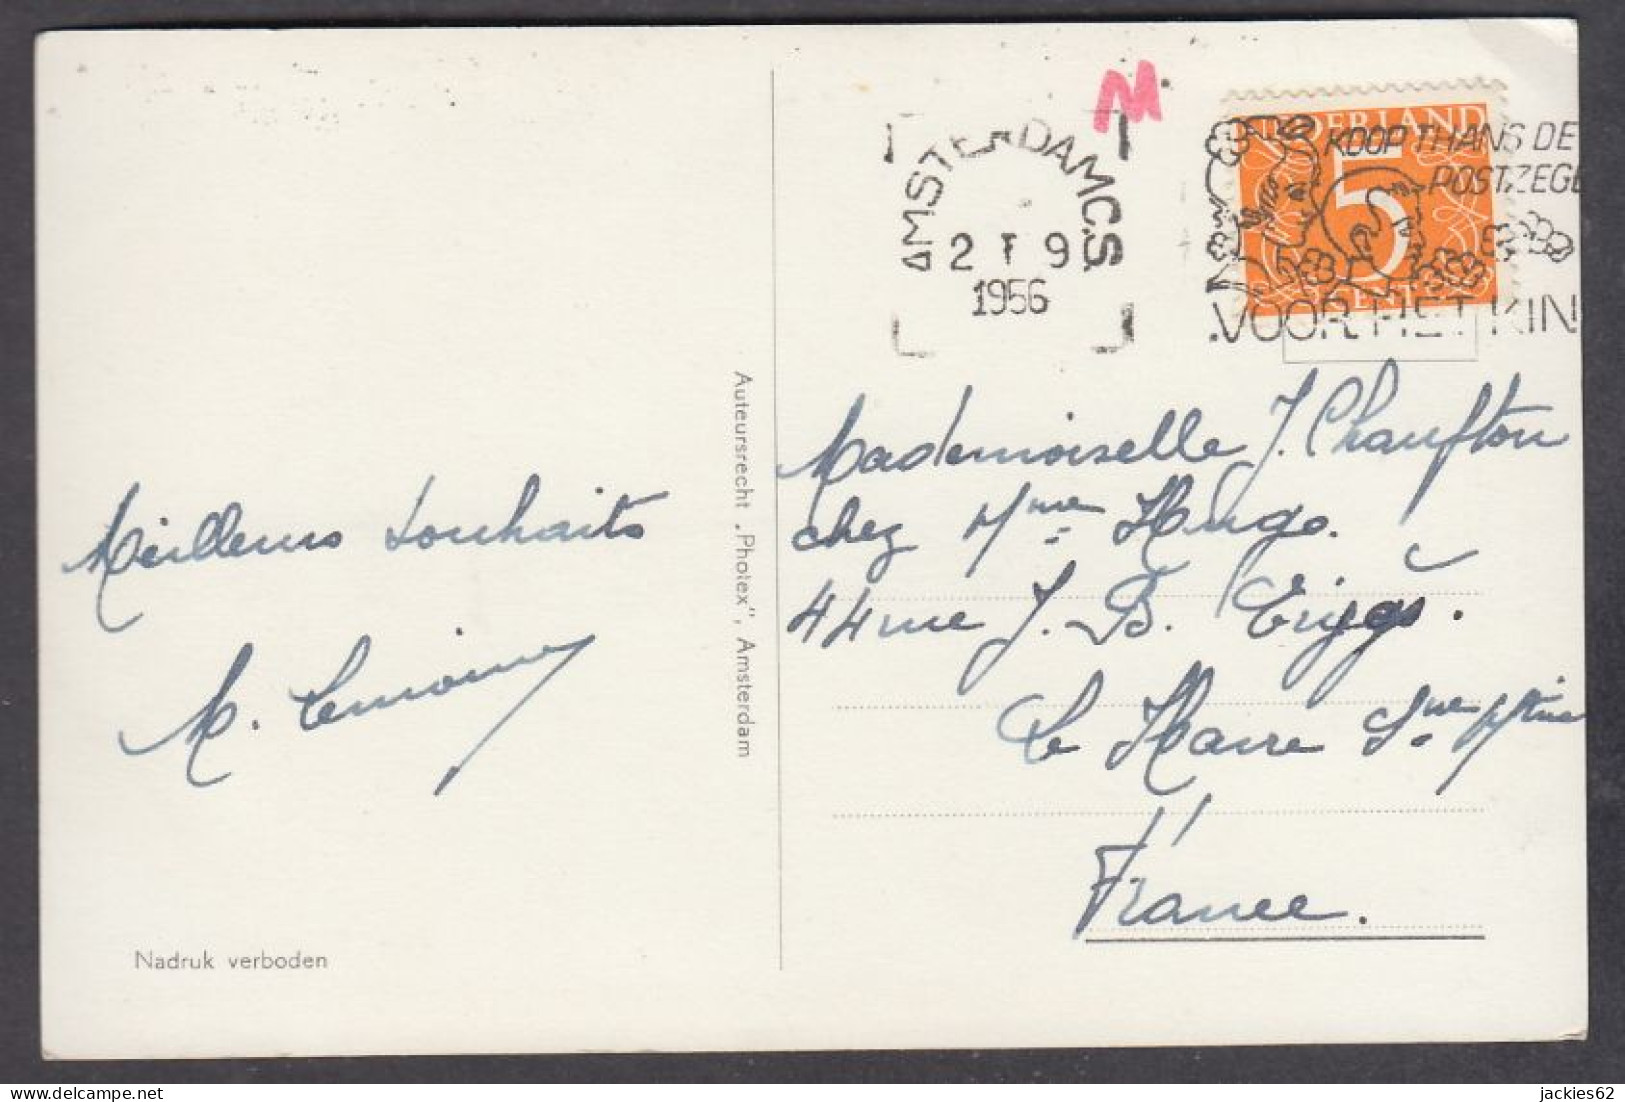 M
AMSTERDAM C.S.
2 I 9
1956
NEDERLAND
5
CENT
KOOP THANS DE
POSTZEGE
VOOR HET KIN
Meilleurs souhaits
M.
Auteursrecht „Pholex”, Amsterdam
Nadruk verboden
Mademoiselle J.
chez Mme Hugo.
44 rue J. B. Eyriès.
Le Havre Sme Mtime
France.
jackies62